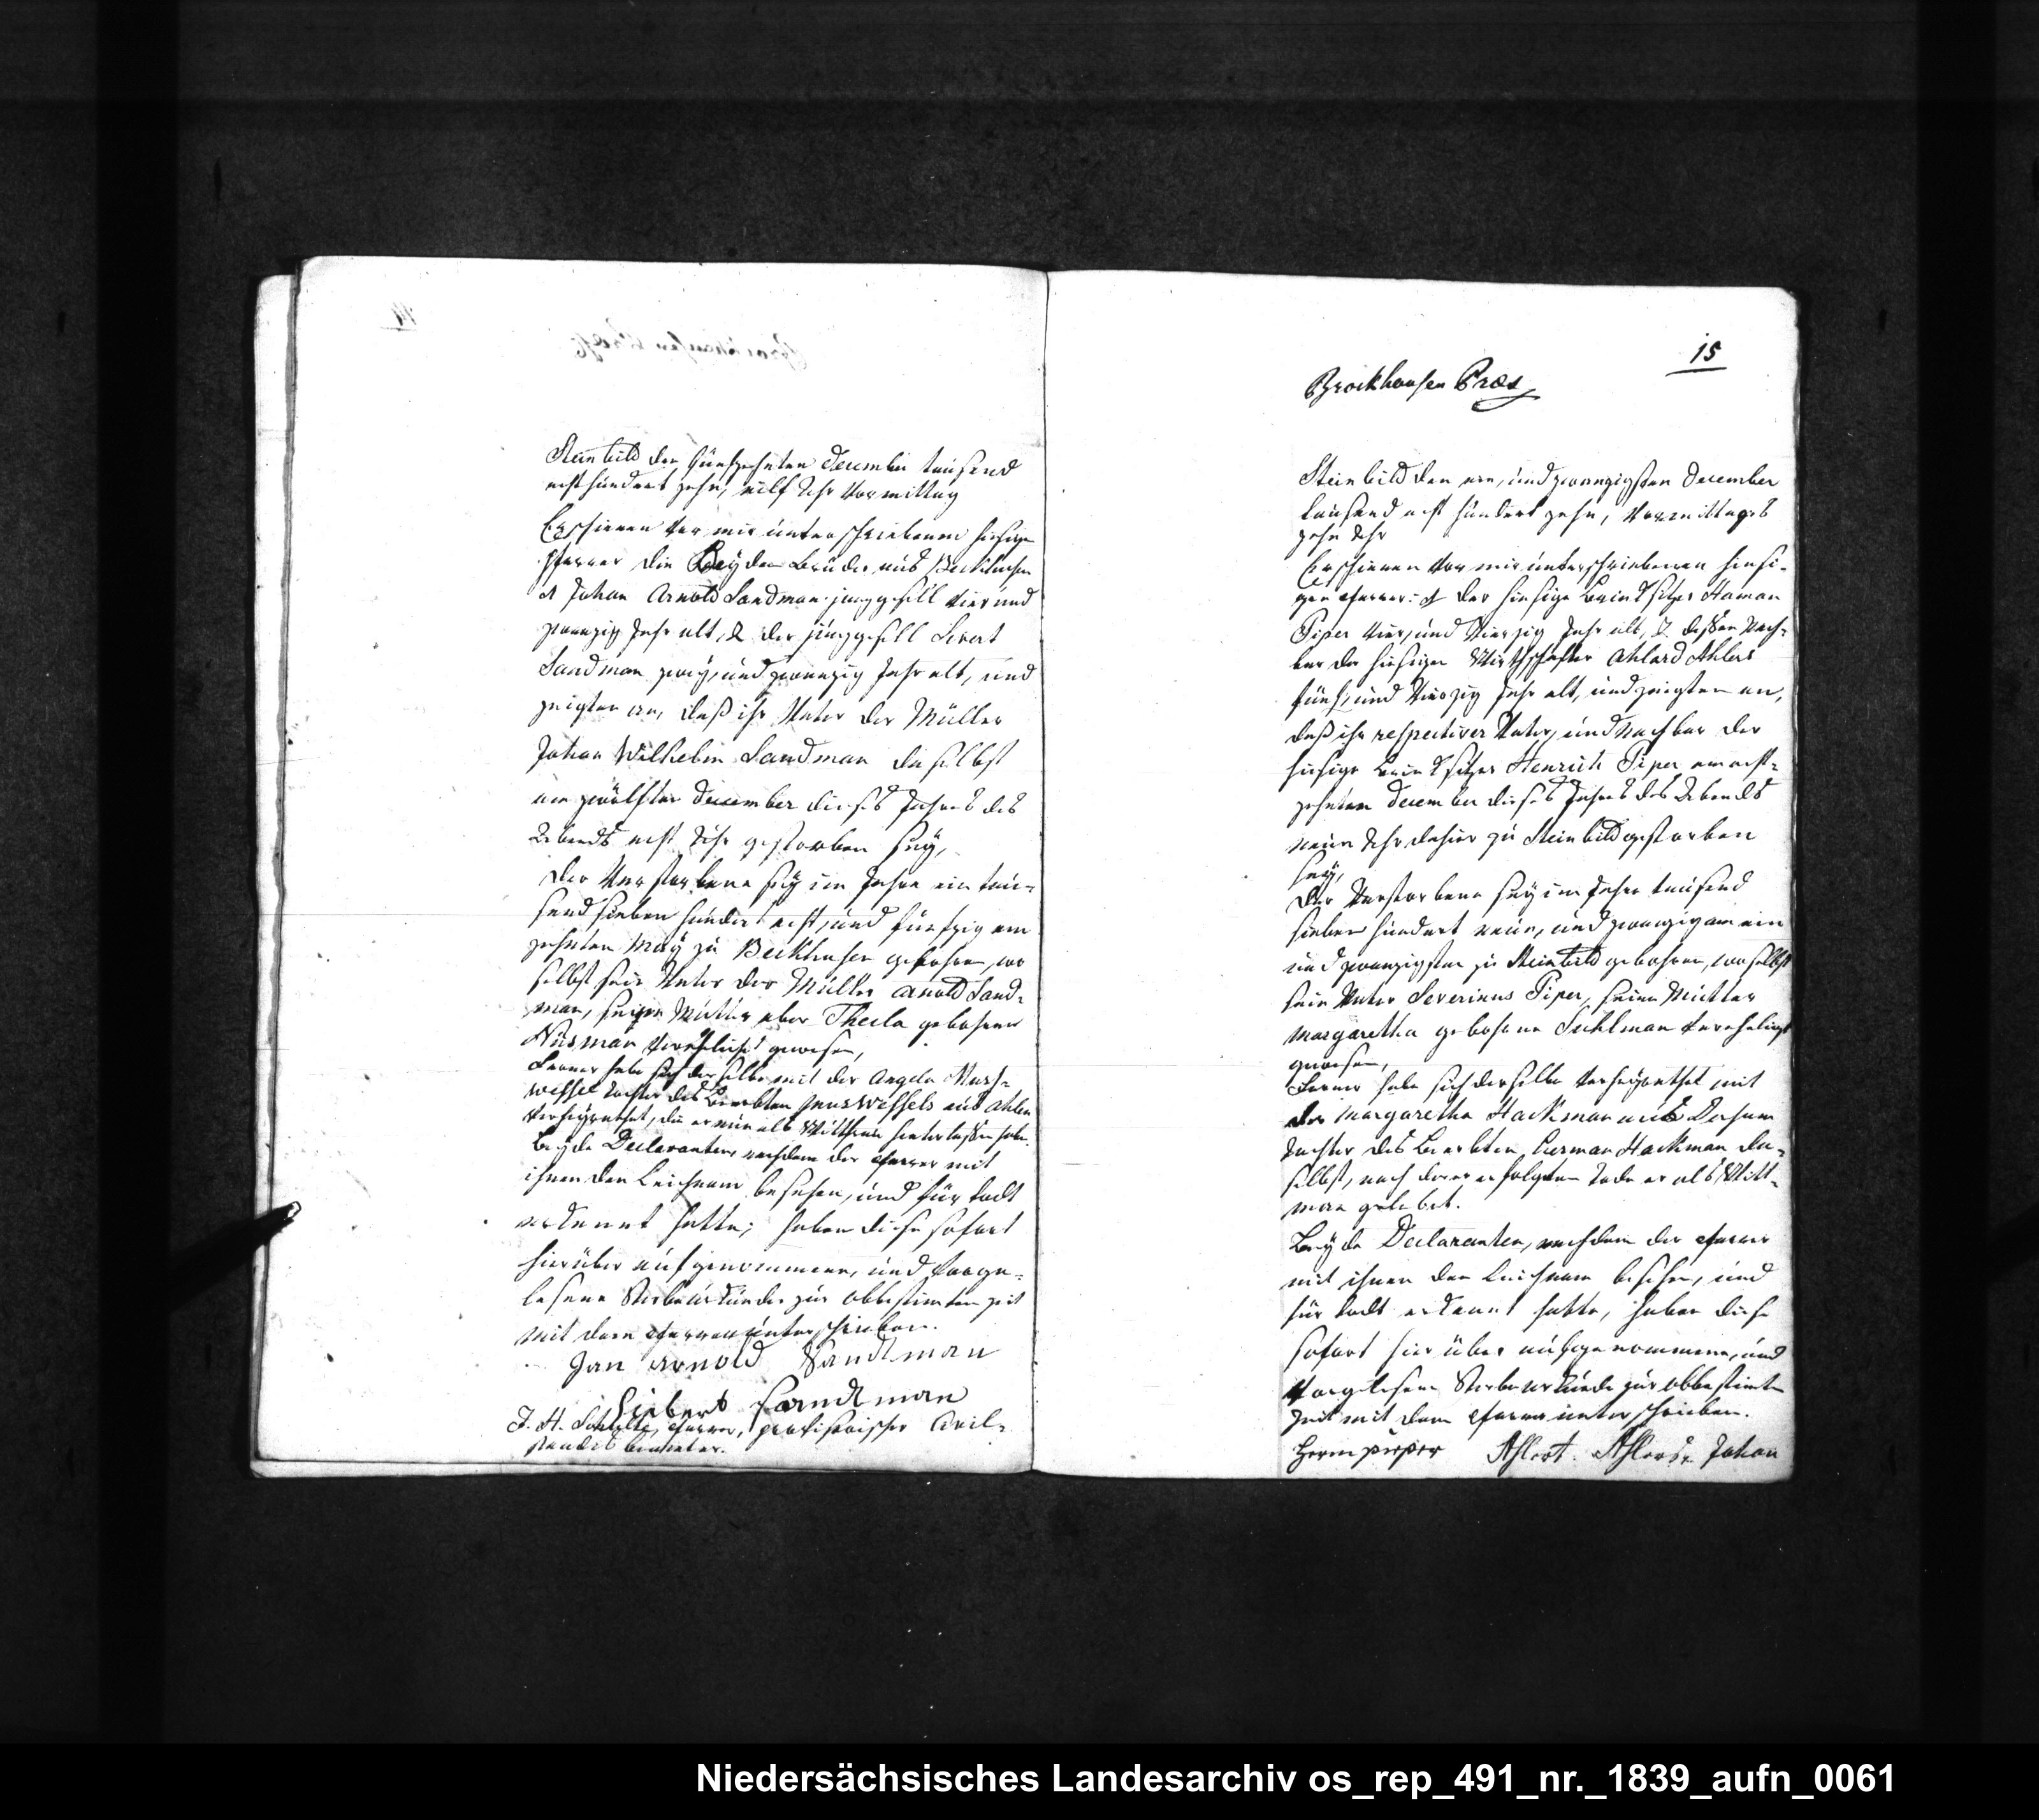 Steinbild den fünfzehnten December tausend
acht hundert zehn, eilf Uhr Vormittag
Erschienen vor mir unterschriebenen hiesigen
Pfarrer die Beyden Brüder aus
Johan Arnold Sandman junggesell vier und
zwanzig Jahr alt, 2 der junggesell Sivert
Sandman zwey, und zwanzig Jahr alt, und
zeigten an, daß ihr Vater der Müller
Johan Wilhelm Sandman daselbst
am zwölften December dieses Jahres des
Abends acht Uhr gestorben sey,
Der Verstorbene sey im Jahre ein tau-
send sieben hundert acht, und fünfzig am
zehnten May zu gebohren, wo
selbst sein Vater der Müller Arnold Sand-
man, seine Mutter aber Thecla gebohrne
Nüsman verehlicht gewesen,
Ferner habe sich derselbe mit der Angela
Wessel tochter des Beerbten Wessels aus Ahlen
verheyrathet, die er nun als Wittwe hinterlassen habe.
Beyde Declaranten, nachdem der Pfarrer mit
ihnen den Leichnam besehen, und für todt
erkennt hatte; haben diese sofort
hierüber aufgenommene, und vorge-
lesene Sterbeurkunde zur obbestimten zeit
mit dem Pfarrer unterschrieben.
Jan Arnold Sandtman
Siebert Sandtman
J. H. Schulte, Pfarrer, provisorischer Civil-
standes beamter.
15
Brockhausen Præs
Steinbild den ein, und zwanzigsten December
tausend acht hundert zehn, Vormittages
zehn Uhr
Erschienen vor mir unterschriebenen hiesi-
gen Pfarrer: 1 der hiesige Brinksitzer Haman
Piper vier, und vierzig Jahr alt, 2. dessen Nach-
bar der hiesiger Ahlard Ahlers
fünf, und vierzig Jahr alt, und zeigten an,
daß ihr respectiver Vater, und Nachbar der
hiesige Brinksitzer Henrich Piper am acht-
zehnten December dieses Jahres des Abends
neun Uhr dahier zu Steinbild gestorben
sey,
Der Verstorbene sey im Jahre tausend
sieben hundert neun, und zwanzig am ein
und zwanzigsten zu Steinbild gebohren, woselbst
sein Vater Severinus Piper, seine Mutter
Margaretha gebohrne Suhlman verehelicht
gewesen,
Ferner habe sich derselbe verheyrathet mit
der Margaretha Hackman aus Dersum
tochter des Beerbten Herman Hackman da-
selbst, nach deren erfolgten Tode er als Witt-
man gelebet.
Beyde Declaranten, nachdem der Pfarrer
mit ihnen den Leichnam besehen, und
für todt erkannt hatte, haben diese
sofort hierüber aufgenommene, und
vorgelesene Sterbeurkunde zur obbestimten
Zeit mit dem Pfarrer unterschrieben.
Herm pieper Ahlert Ahlers Johan
Niedersächsisches Landesarchiv os_rep_491_nr._1839_aufn_0061